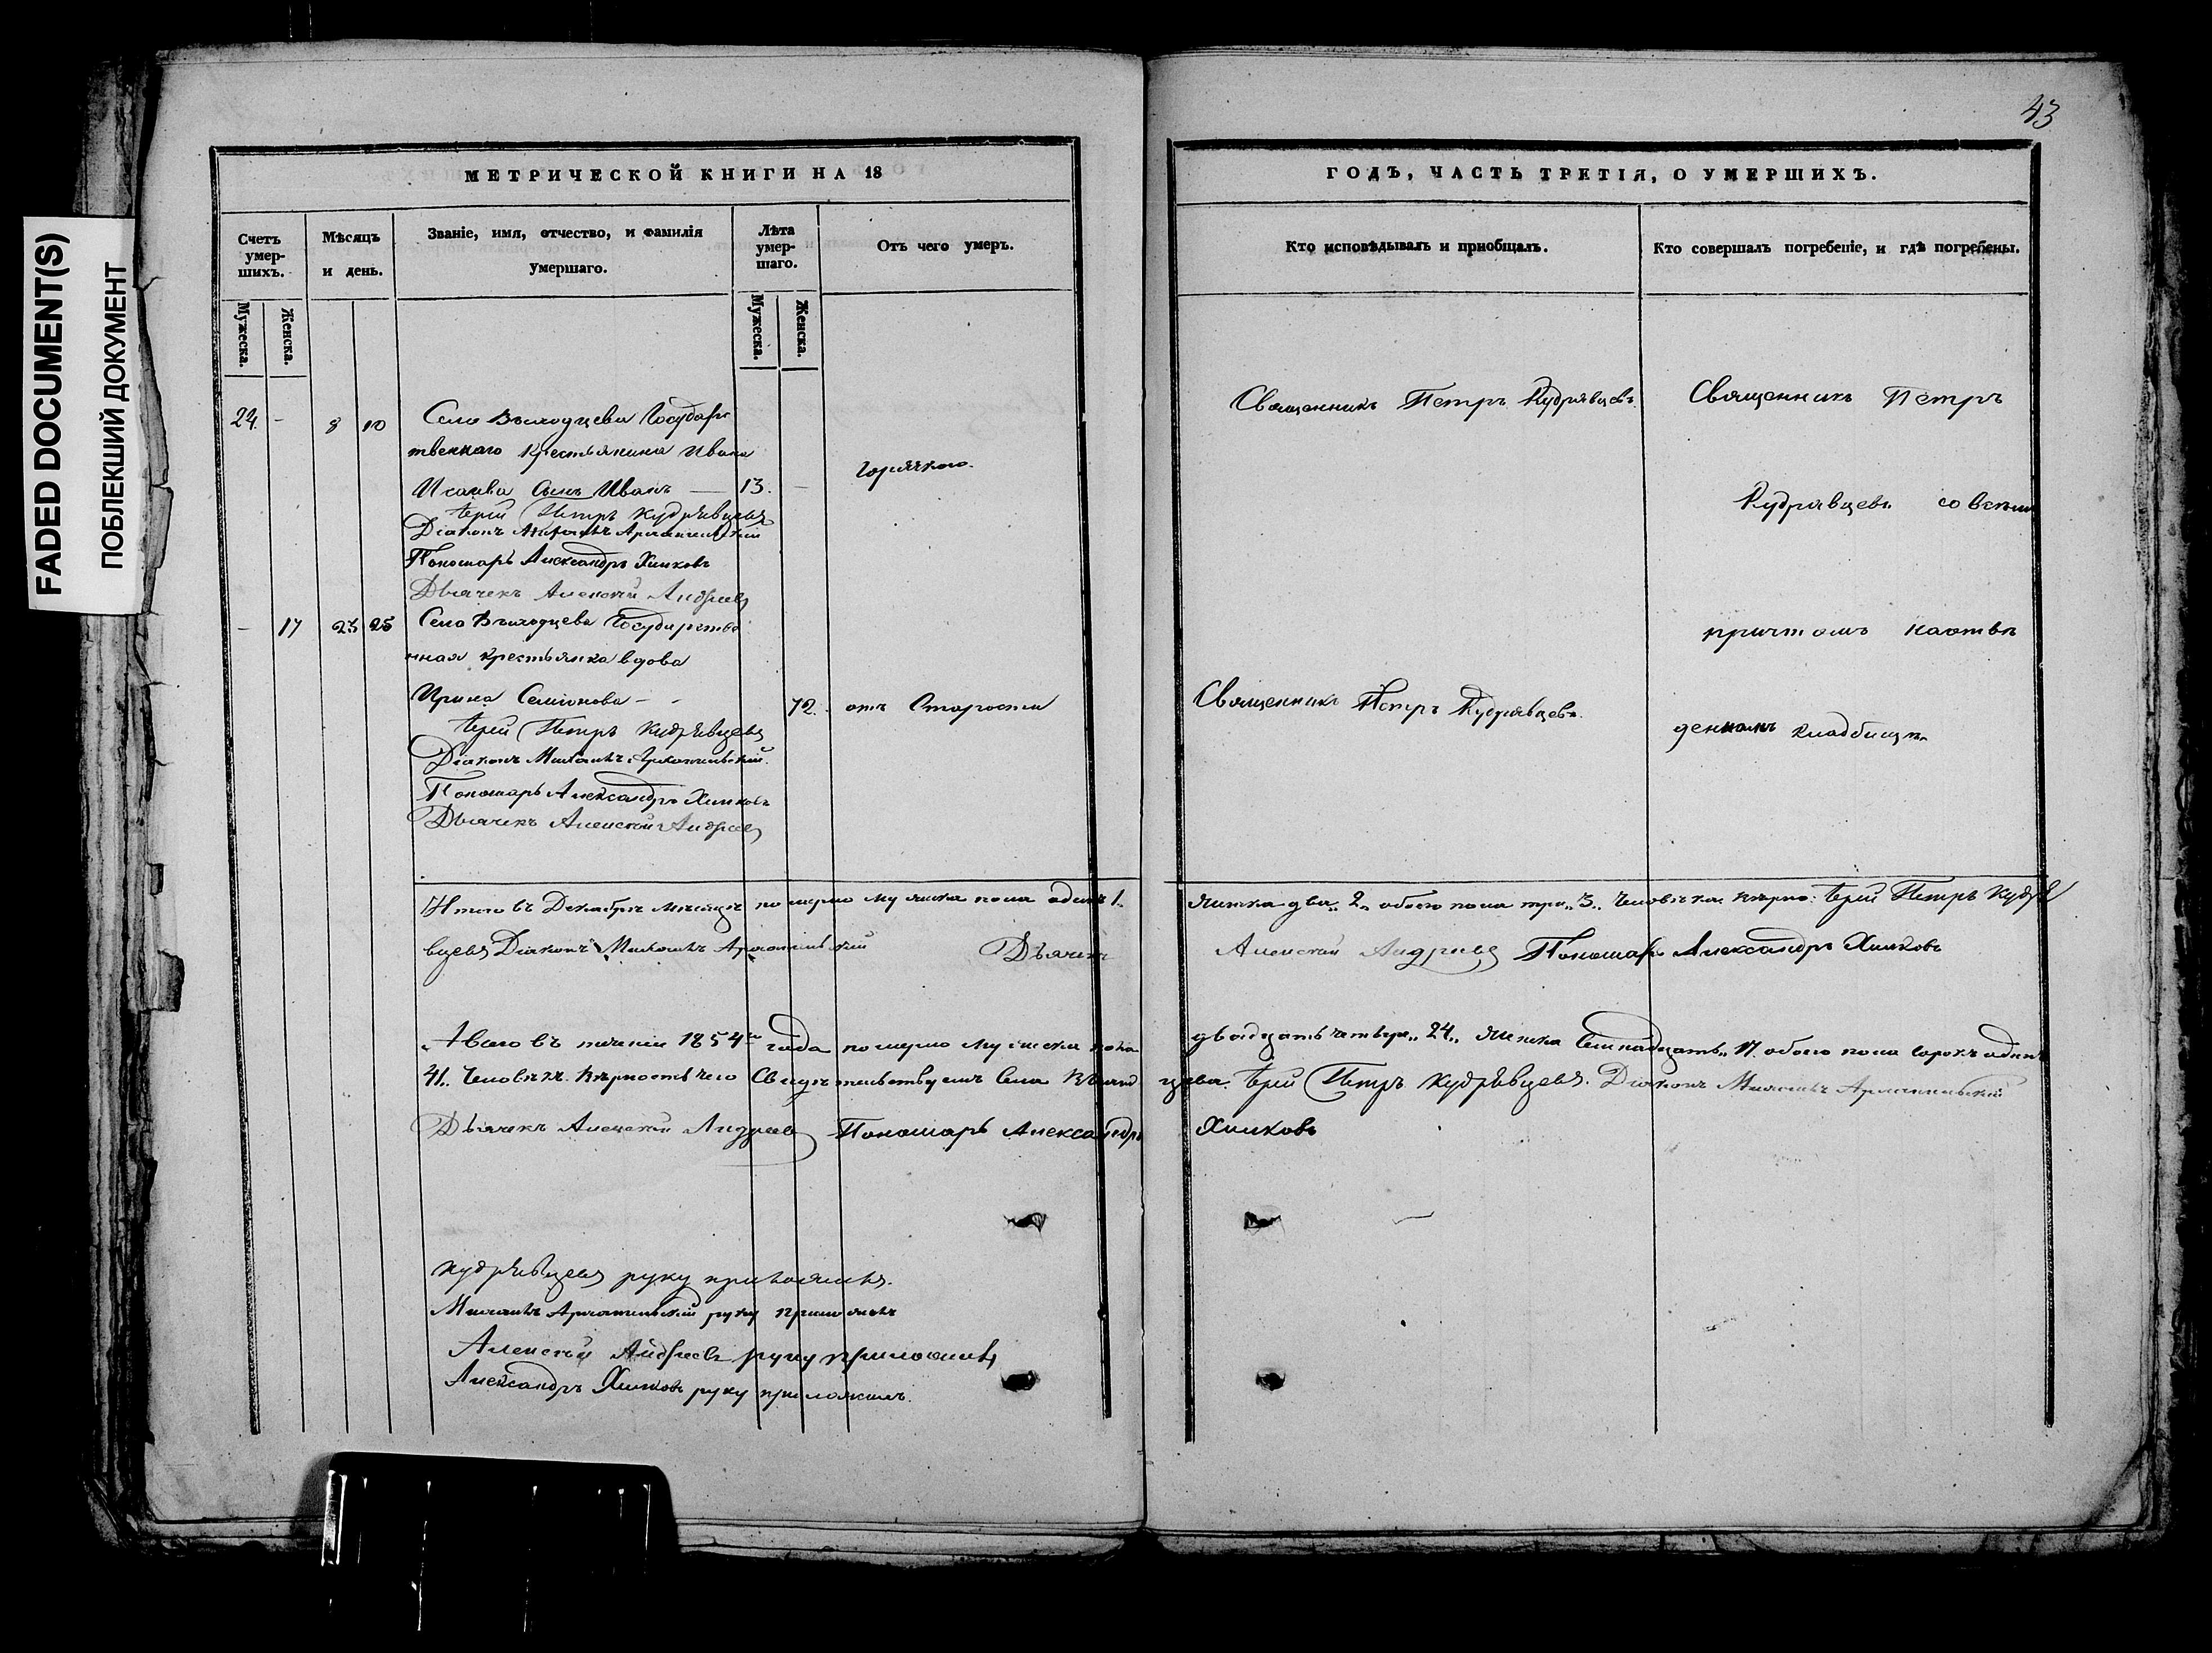 43
FADED DOCUMENT(S)
ПОБЛЕКШИЙ ДОКУМЕНТ
МЕТРИЧЕСКОЙ КНИГИ НА 18
ГОДЪ, ЧАСТЬ ТРЕТІЯ, О УМЕРШИХЪ.
Счетъ умер-шихъ.
Мужеска.
Женска.
Мѣсяцъ и день.
Званіе, имя, отчество, и фамилія умершаго.
Лѣта умер-шаго.
Мужеска.
Женска.
Отъ чего умеръ.
Кто исповѣдывалъ и пріобщалъ.
Кто совершалъ погребеніе, и гдѣ погребены.
24. - 8 10 Села Государс
твеннаго крестьянина Ивана
Исаева сынъ Иванъ — 13. —
горячкою.
Священникъ Петръ Кудрявцевъ.
Іерей Петръ Кудрявцевъ
Діаконъ
Пономарь Александръ Химковъ
Дьячекъ Алексѣй Андреевъ
- 17 23 25 Села Государстве
нная крестьянка вдова
Ирина Семіонова - - 72. отъ старости
Священникъ Петръ Кудрявцевъ.
Іерей Петръ Кудрявцевъ
Діаконъ Михаилъ
Пономарь Александръ Химковъ
Дьячекъ Алексѣй Андреевъ
Священникъ Петръ
Кудрявцевъ со всѣмъ
причтомъ на отве
денномъ кладбищѣ
Итого въ Декабрѣ мѣсяцѣ померло мужеска пола одинъ 1.
женска два „2„ обоего пола три „3„ человѣка. Вѣрно: Іерей Петръ Кудря
вцевъ Діаконъ Михаилъ Дьячекъ
Алексѣй Андреевъ Пономарь Александръ Химковъ
А всего въ теченіи 1854го года померло мужеска пола
двадцать четыре „24„ женска семнадцать „17. обоего пола сорокъ одинъ
41. человѣкъ. Вѣрность чего свидѣтельствуемъ села
цева. Іерей Петръ Кудрявцевъ. Діаконъ Михаилъ
Дьячекъ Алексѣй Андреевъ Пономарь Александръ
Химковъ
Кудрявцевъ руку приложилъ.
Михаилъ руку приложилъ
Алексѣй Андреевъ руку приложилъ
Александръ Химковъ руку приложилъ.